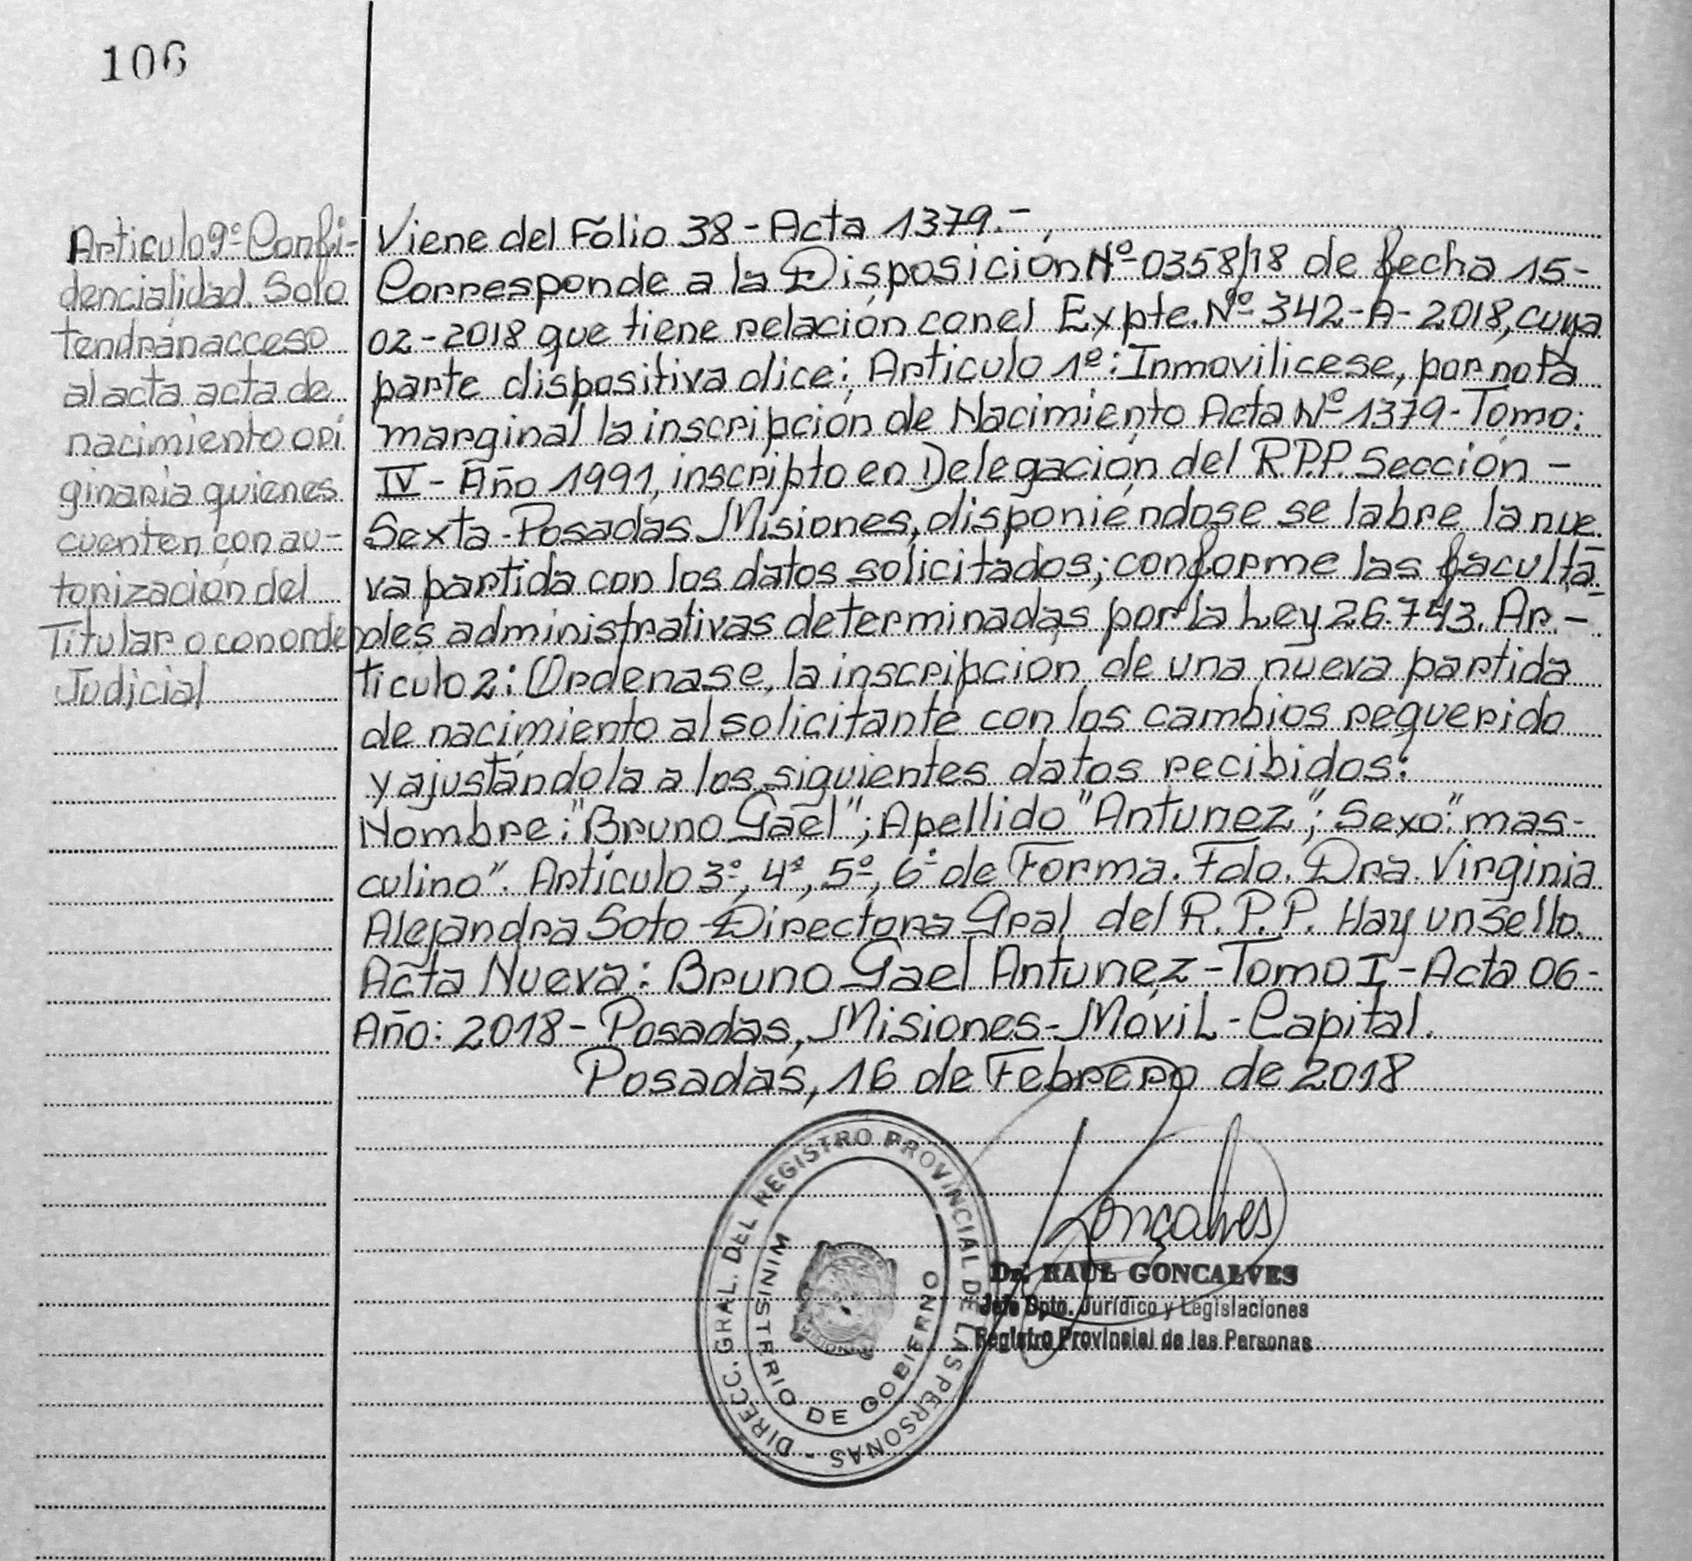 106
Articulo 9º Confi-
dencialidad. Solo
tendrán acceso
al acta acta de
nacimiento ori
ginaria quienes
cuenten con au-
torización del
Titular o con orde
Judicial
Viene del Folio 38 - Acta 1379.-
Corresponde a la Disposición Nº 0358/18 de fecha 15-
02-2018 que tiene relación con el Expte. Nº 342-A-2018, cuya
parte dispositiva dice: Articulo 1º: Inmovilicese, por nota
marginal la inscripción de Nacimiento Acta Nº 1379-Tomo:
IV - Año 1991, inscripto en Delegación del R.P.P. Sección -
Sexta-Posadas Misiones, disponiéndose se labre la nue
va partida con los datos solicitados; conforme las faculta
des administrativas determinadas por la Ley 26.743. Ar.-
ticulo 2: Ordenase, la inscripción de una nueva partida
de nacimiento al solicitante con los cambios requerido
y ajustándola a los siguientes datos recibidos:
Nombre: "Bruno Gael"; Apellido "Antunez"; Sexo: "mas-
culino". Artículo 3º, 4º, 5º, 6º de Forma. Fdo. Dra. Virginia
Alejandra Soto - Directora Gral del R.P.P. Hay un sello.
Acta Nueva: Bruno Gael Antunez - Tomo I - Acta 06 -
Año: 2018 - Posadas, Misiones - Móvil - Capital.
Posadas, 16 de Febrero de 2018
DIRECC. GRAL. DEL REGISTRO PROVINCIAL DE LAS PERSONAS -
MINISTERIO DE GOBIERNO
Gonçalves
Dr. RAUL GONCALVES
Jefe Dpto. Jurídico y Legislaciones
Registro Provincial de las Personas